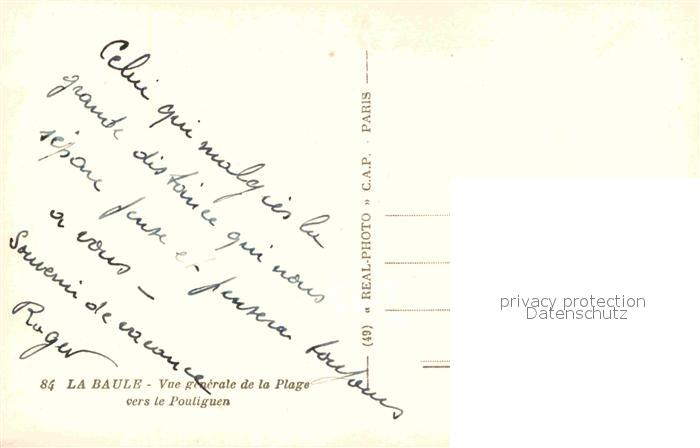 Celui qui malgrés la
grande distance qui nous
sépare pense et pensera toujours
a vous —
Souvenir de vacance
Roger
84 LA BAULE - Vue générale de la Plage
vers le Pouliguen
(49) « REAL-PHOTO » C.A.P. . PARIS
privacy protection
Datenschutz